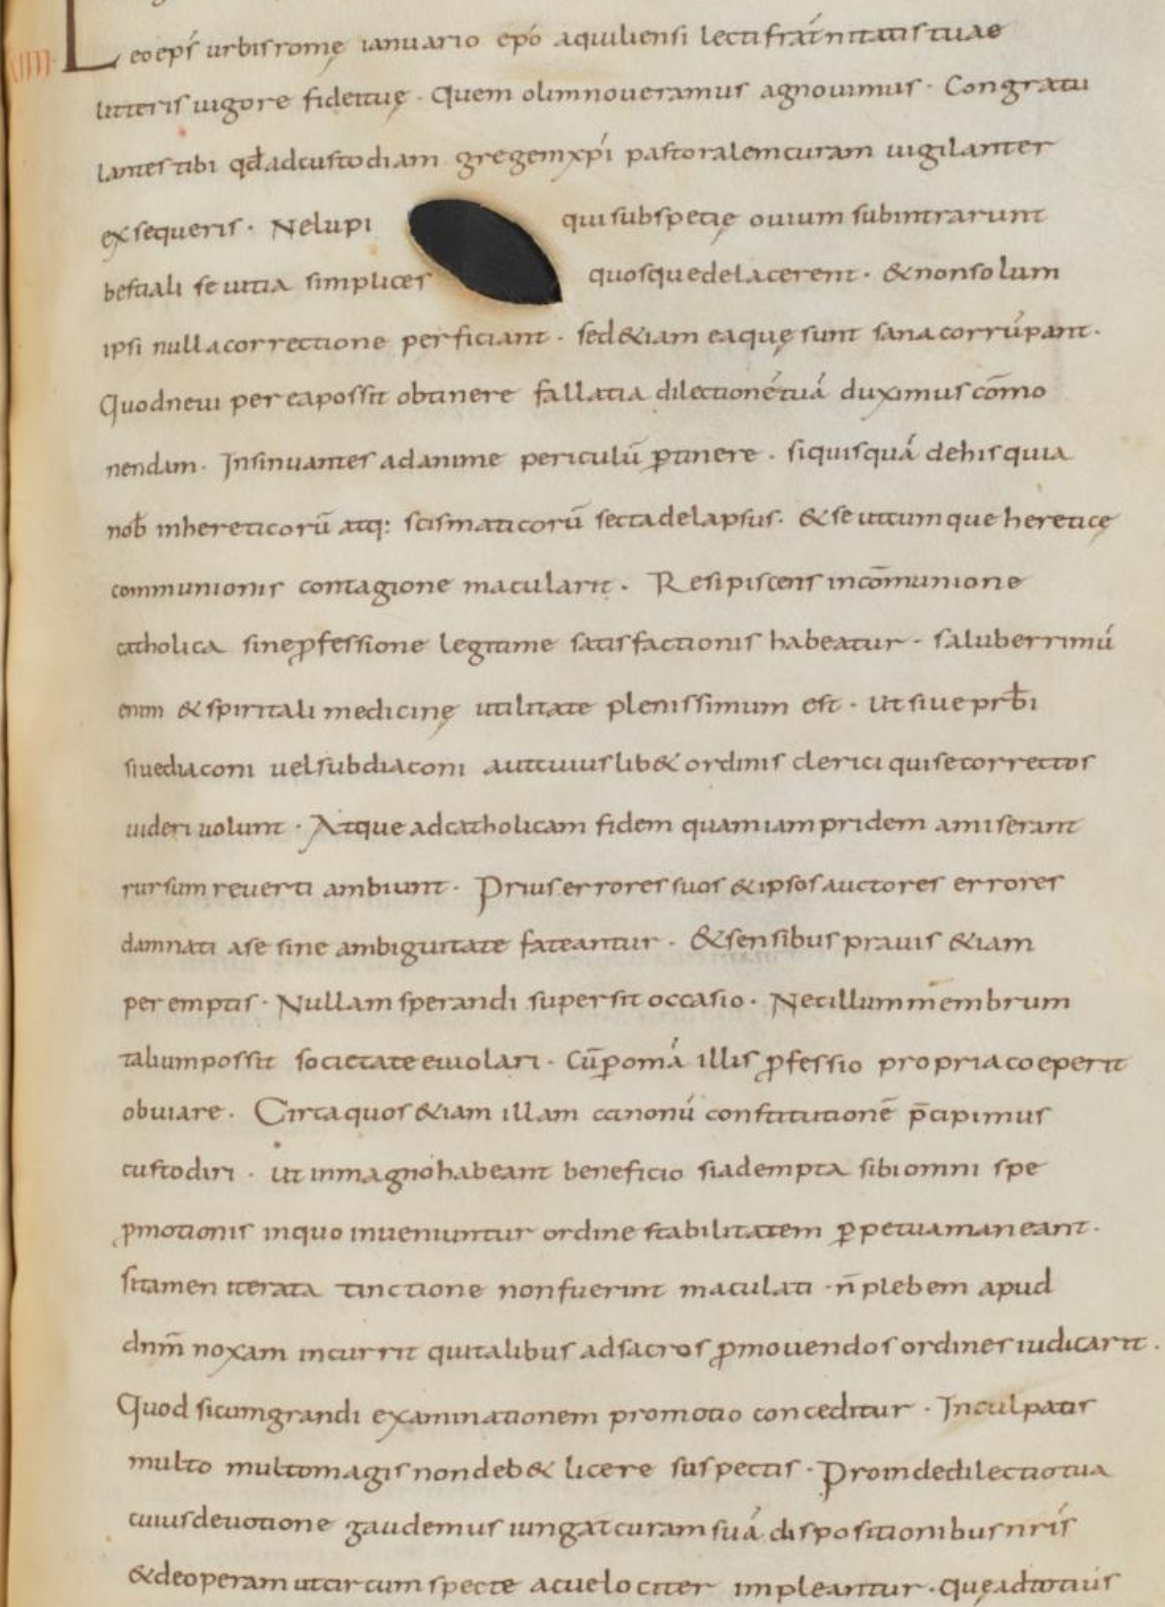 XIIII
Leo ep̄s urbis romę ianuario ep̄o aquiliensi lecti frat̄nitatis tuae
litteris uigore fidei tuę · Quem olim noueramus agnouimus · Congratu
lantes tibi qd̄ ad custodiam gregem xp̄i pastoralem curam uigilanter
exsequeris · Ne lupi qui sub specię ouium subintrarunt
bestiali seuitia simplices quosque delacerent · & non solum
ipsi nulla correctione perficiant · sed &iam ea quę sunt sana corrūpant ·
Quod ne ui perea possit obtinere fallatia dilectionē tuā duximus com̄o
nendam · Insinuantes ad anime periculū ꝑtinere · si quisquā de his qui a
nob̄ in hereticorū atq: scismaticorū secta delapsus · & se utcumque heretice̜
communionis contagione macularit · Resipiscens in com̄unione
catholica sine ꝓfessione legitime satisfactionis habeatur · saluberrimū
enim & spiritali medicinę utilitate plenissimum est · Ut siue prb̄i
siue diaconi uel subdiaconi aut cuiuslib& ordinis clerici qui se correctos
uideri uolunt · Atque ad catholicam fidem quam iam pridem amiserant
rursum reuerti ambiunt · Prius errores suos & ipsos auctores errores
damnati a se sine ambiguitate fateantur · & sensibus prauis &iam
peremptis · Nullam sperandi supersit occasio · Nec illum membrum
talium possit societate euiolari · Cū ꝑ omā illis ꝓfessio propria coeperit
obuiare · Circa quos &iam illam canonū constitutionē p̄cipimus
custodiri · Ut in magno habeant beneficio si adempta sibi omni spe
ꝓmotionis in quo inueniuntur ordine stabilitatem ꝑpetua maneant ·
si tamen iterata tinctione non fuerint maculati · n̄ plebem apud
dn̄m noxam incurrit qui talibus ad sacros ꝓmouendos ordines iudicarit ·
Quod si cum grandi examinationem promotio conceditur · Inculpatis
multo multo magis non deb& licere suspectis · Proinde dilectio tua
cuius deuotione gaudemus iungat curam suā dispositionibus nrīs
& de operam ut circumspecte ac uelociter impleantur · quę ad totius